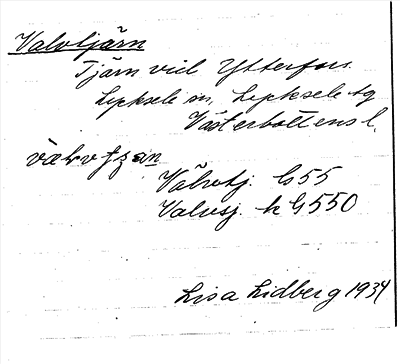 Valvtjärn
Tjärn vid Ytterfors.
Lycksele sn, Lycksele tg
Västerbottens l.
Välvtj. G55
Valvsj. k G550
Lisa Lidberg 1934